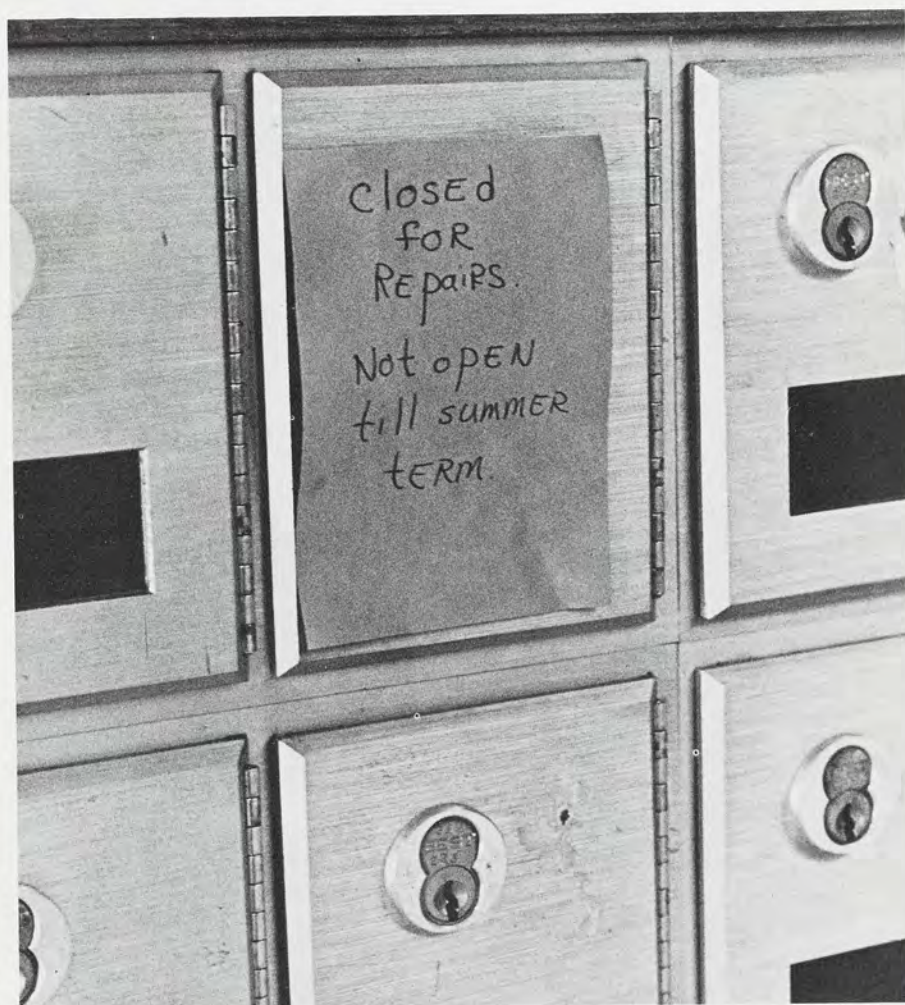 closEd
foR
REpaiRs.
Not opEN
till summER
tERm.